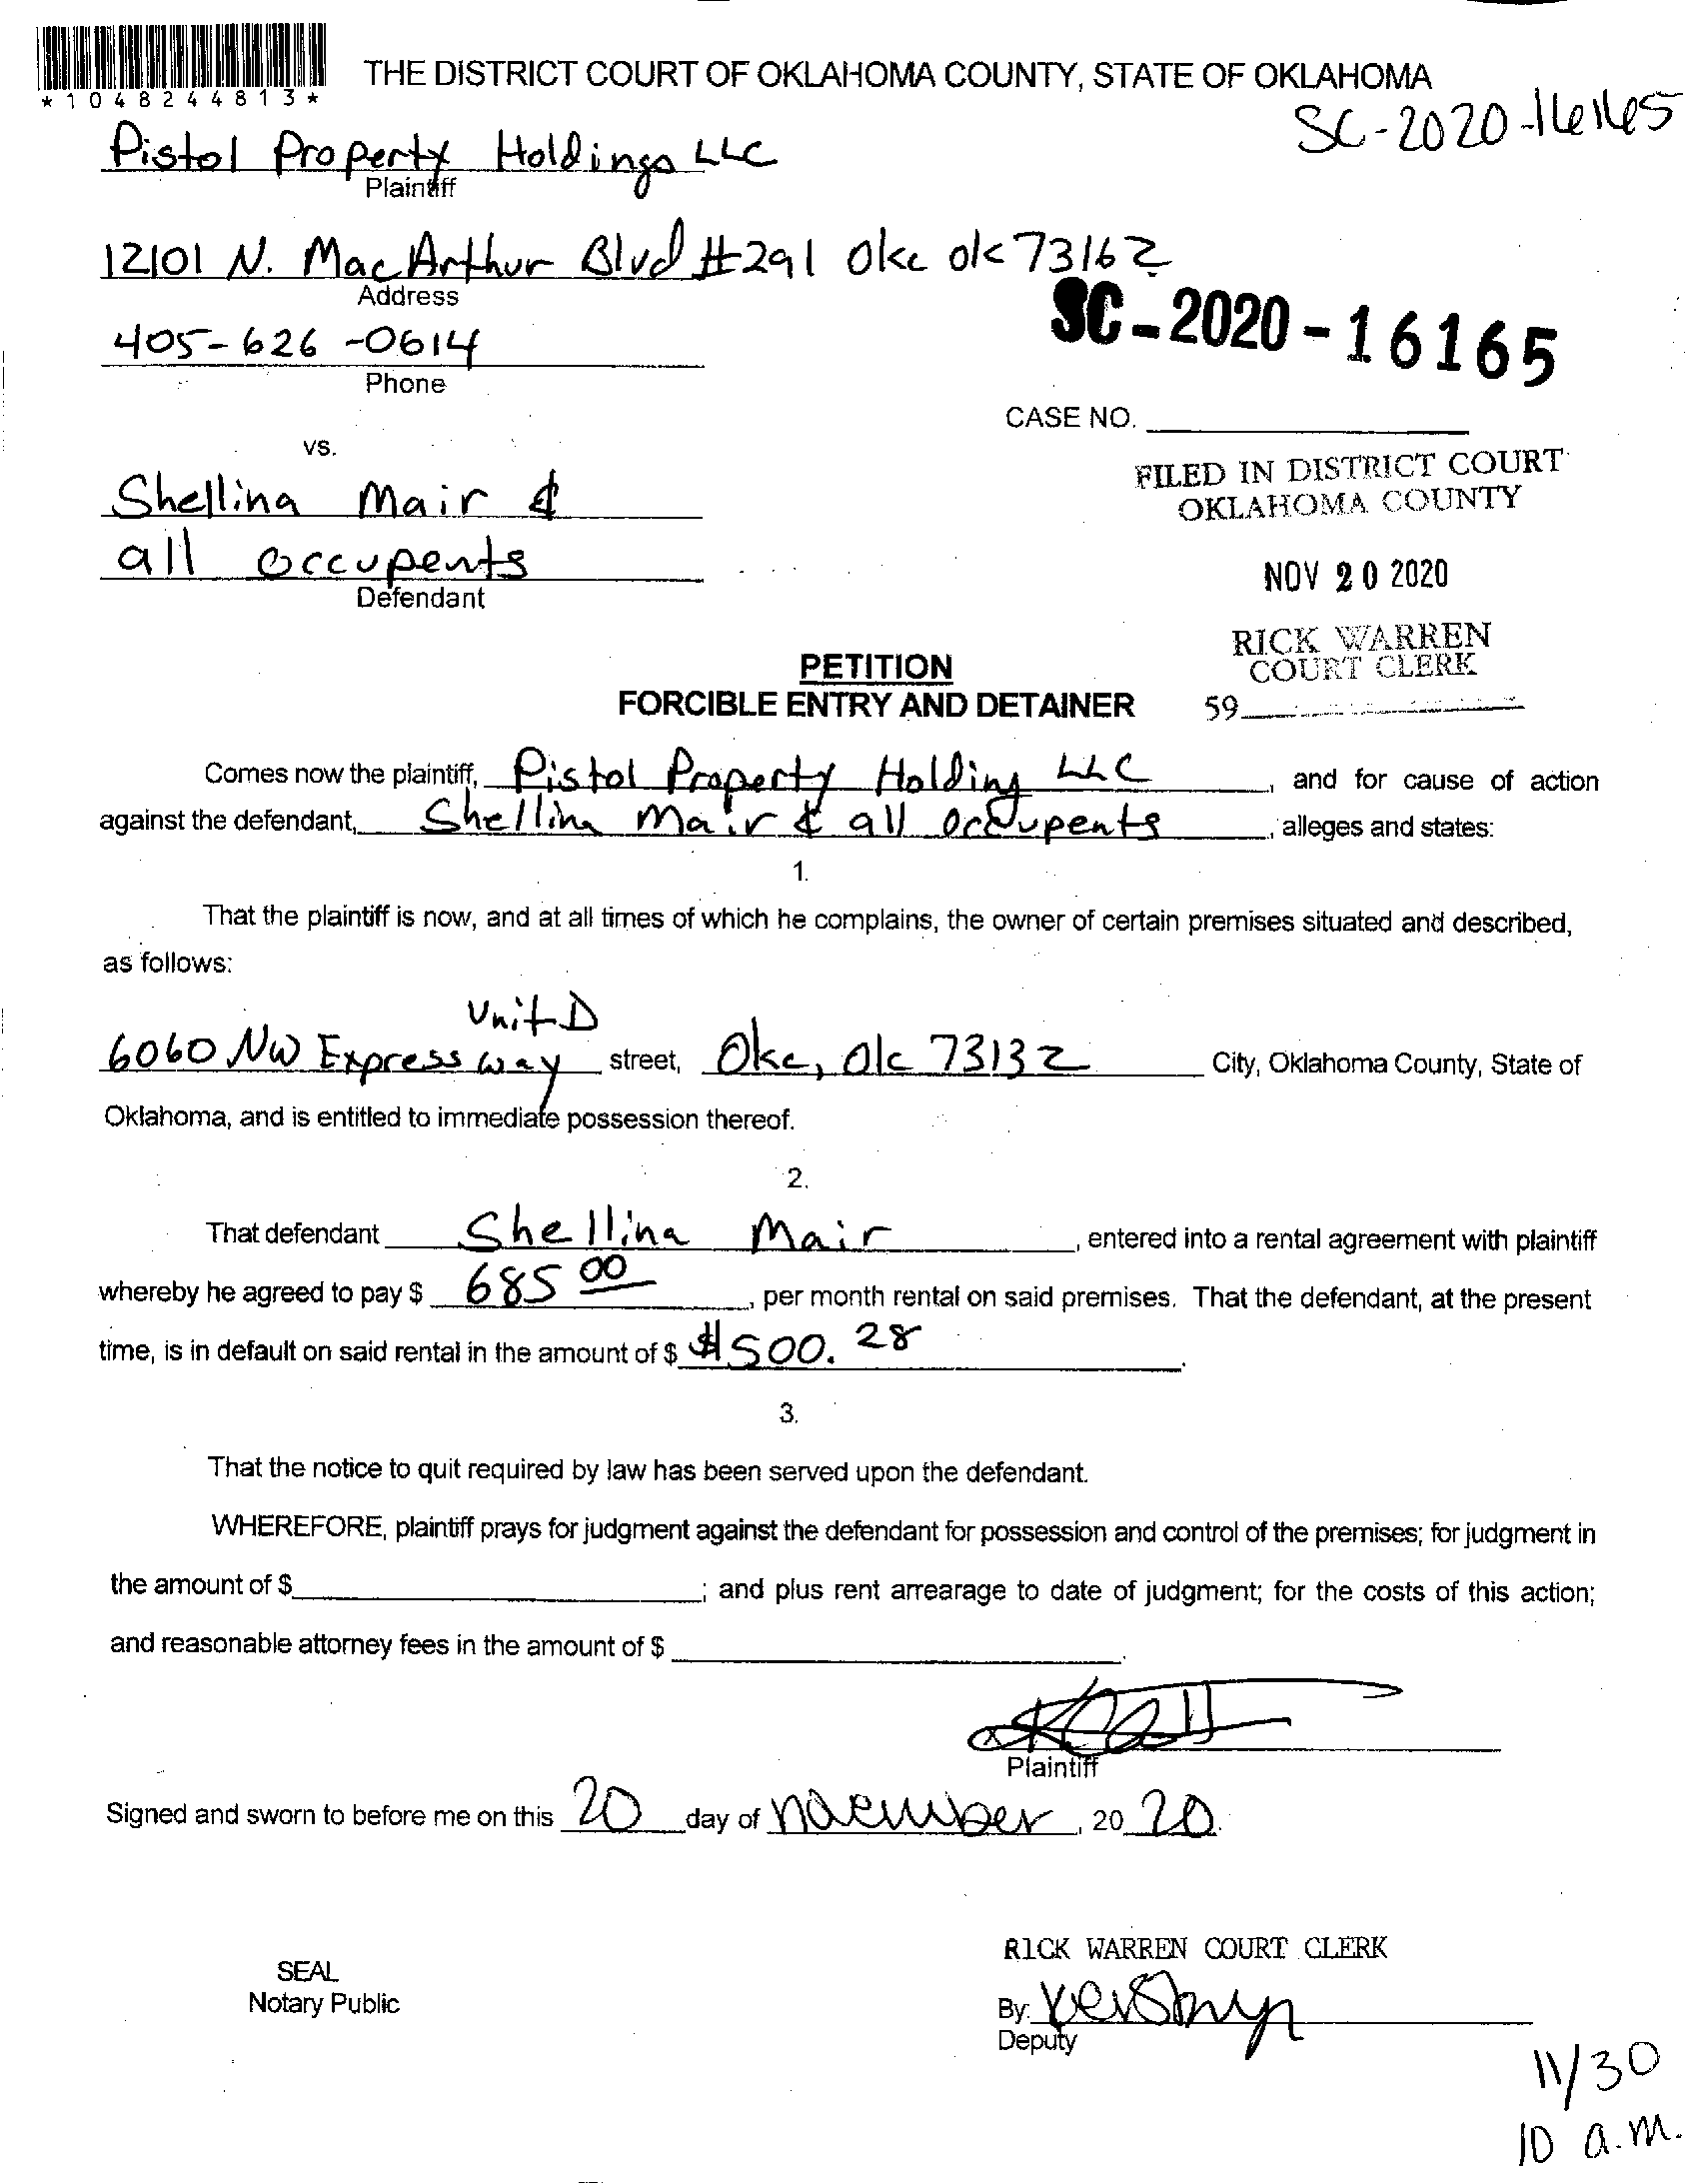 THE DISTRICT COURT OF OKLAHOMA COUNTY, STATE OF OKLAHOMA
*1048244813*
SC-2020-16165
Pistol Property Holdings LLC
Plaintiff
12101 N. MacArthur Blvd #291 Okc ok 73162
Address
SC-2020-16165
405-626-0614
Phone
CASE NO.
vs.
FILED IN DISTRICT COURT
OKLAHOMA COUNTY
Shellina Mair &
all occupents
Defendant
NOV 20 2020
RICK WARREN
COURT CLERK
59
PETITION
FORCIBLE ENTRY AND DETAINER
Comes now the plaintiff, Pistol Property Holding LLC, and for cause of action
against the defendant, Shellina Mair & all occupents, alleges and states:
1.
That the plaintiff is now, and at all times of which he complains, the owner of certain premises situated and described,
as follows:
Unit D
6060 NW Expressway street, Okc, Ok 73132 City, Oklahoma County, State of
Oklahoma, and is entitled to immediate possession thereof.
2.
That defendant Shellina Mair, entered into a rental agreement with plaintiff
whereby he agreed to pay $ 685 00, per month rental on said premises. That the defendant, at the present
time, is in default on said rental in the amount of $ $500.28.
3.
That the notice to quit required by law has been served upon the defendant.
WHEREFORE, plaintiff prays for judgment against the defendant for possession and control of the premises; for judgment in
the amount of $; and plus rent arrearage to date of judgment; for the costs of this action;
and reasonable attorney fees in the amount of $.
Plaintiff
Signed and sworn to before me on this 20 day of November, 20 20.
RICK WARREN COURT CLERK
SEAL
Notary Public
By:
Deputy
11/30
10 a.m.